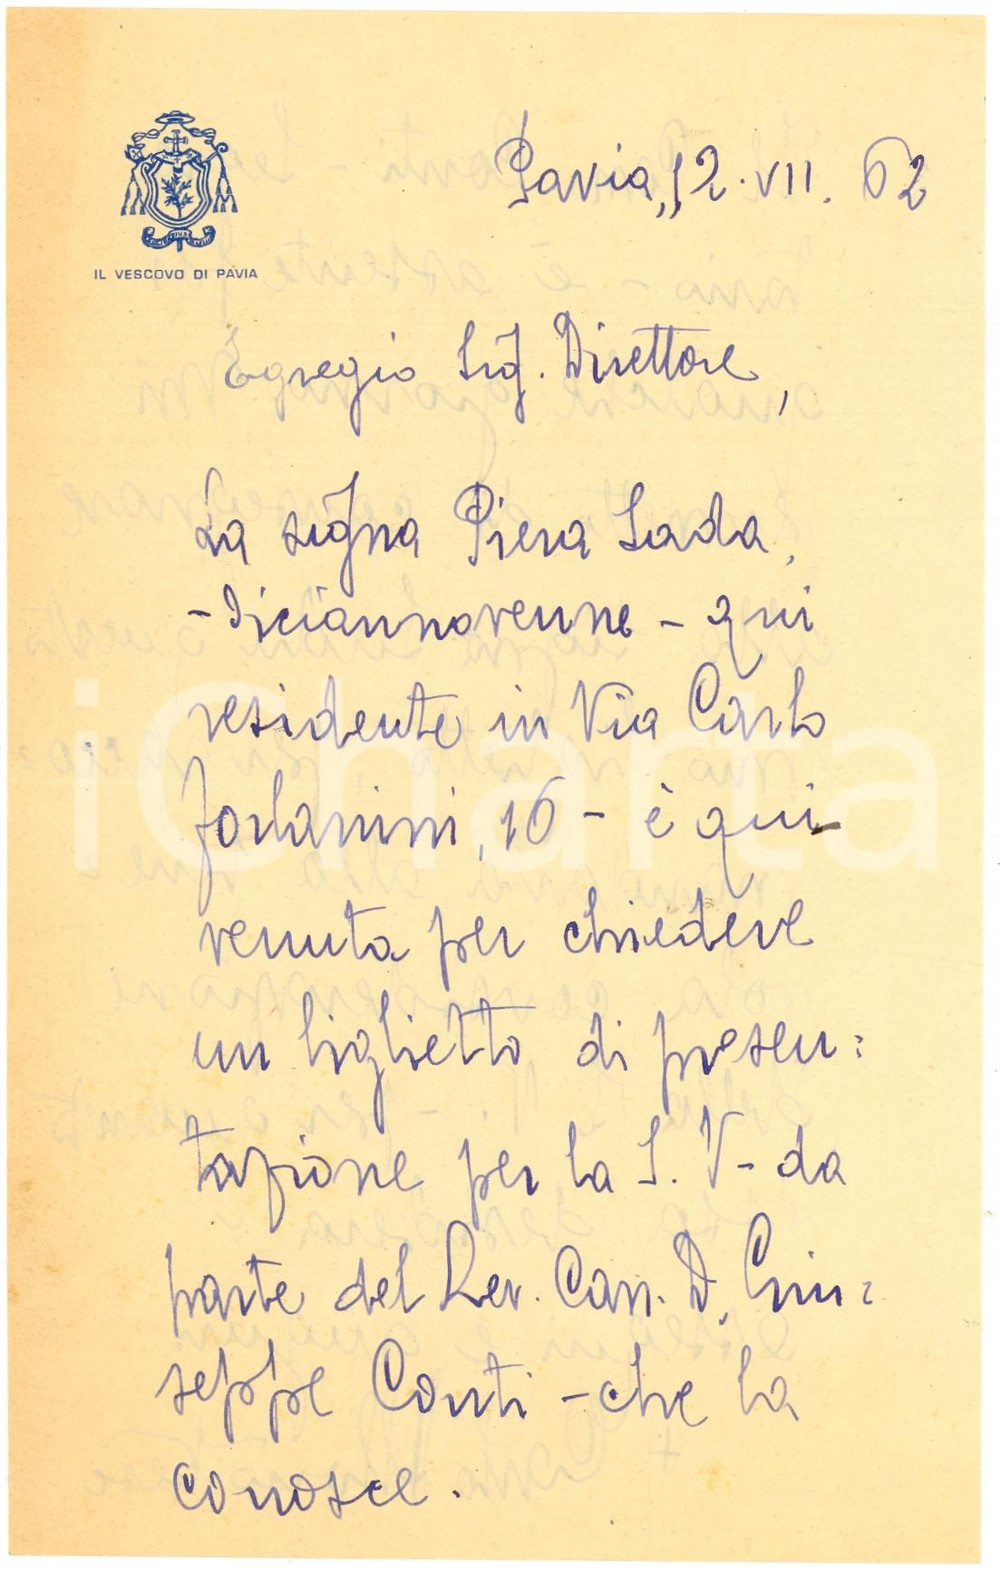 IL VESCOVO DI PAVIA
Pavia, 12. VII. 62
Egregio Sig. Direttore,
La signa Piera Sada,
- diciannovenne - qui
residente in Via Carlo
Forlanini, 16 - è qui
venuta per chiedere
un biglietto di presen:
tazione per la S. V. - da
parte del Rev. Can. D. Giu:
seppe Conti - che la
conosce.
iCharta